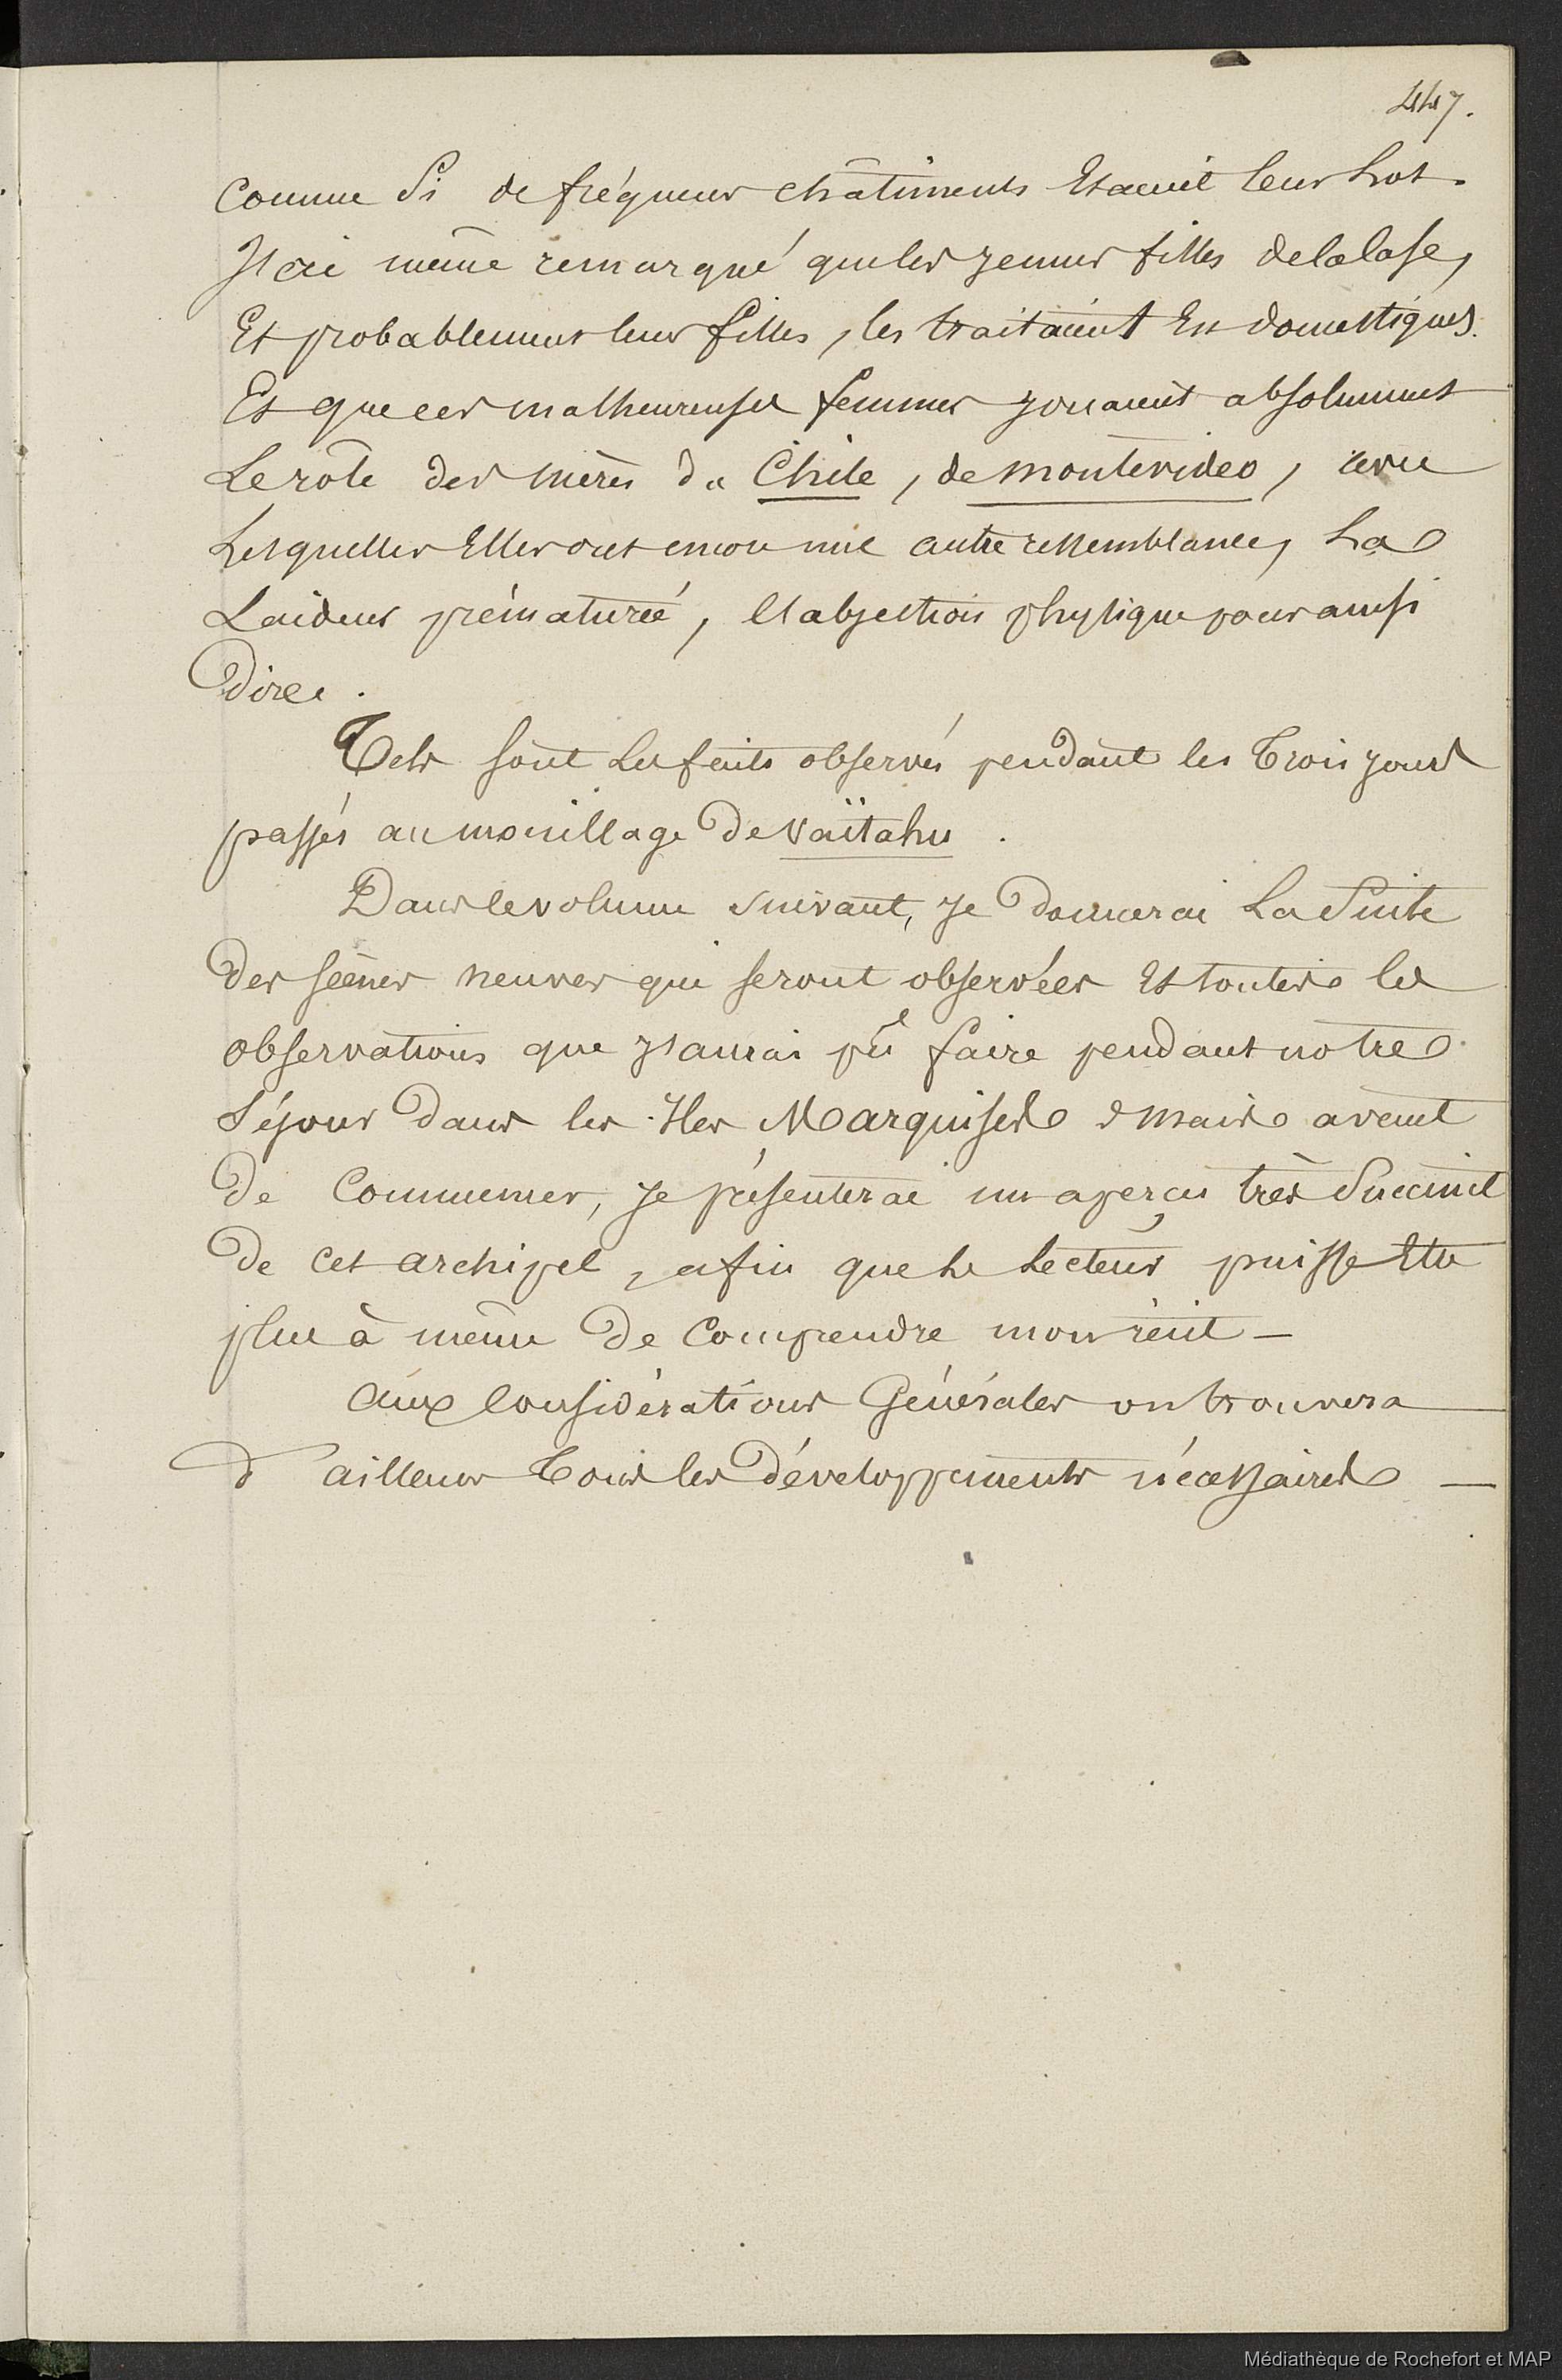 447.
comme si de fréquens châtiments Etaient leur Lot.
J'ai même remarqué que les jeunes filles de la Case,
Et probablement leurs filles, les traitaient En domestiques.
Et que ces malheureuses femmes jouaient absolument
Le role des mères du Chile, de montevideo, avec
Lesquelles Elles ont encore une autre ressemblance, La
Laideur prématurée, l'abjection physique pour ainsi
Dire.
Tels sont Les faits observés pendant les Trois jours
passés au mouillage De Vaïtahu.
Dans le volume suivant, Je Donnerai La Suite
Des scènes neuves qui seront observées Et toutes les
observations que j'aurai pû faire pendant notre
Séjour Dans les Iles Marquises mais avant
De Commencer, Je présenterai un aperçu très Succinct
De cet archipel, afin que le Lecteur puisse Etre
plus à même De Comprendre mon récit —
Aux Considérations Générales on trouvera
D'ailleurs Tous les Développements nécessaires —
Médiathèque de Rochefort et MAP